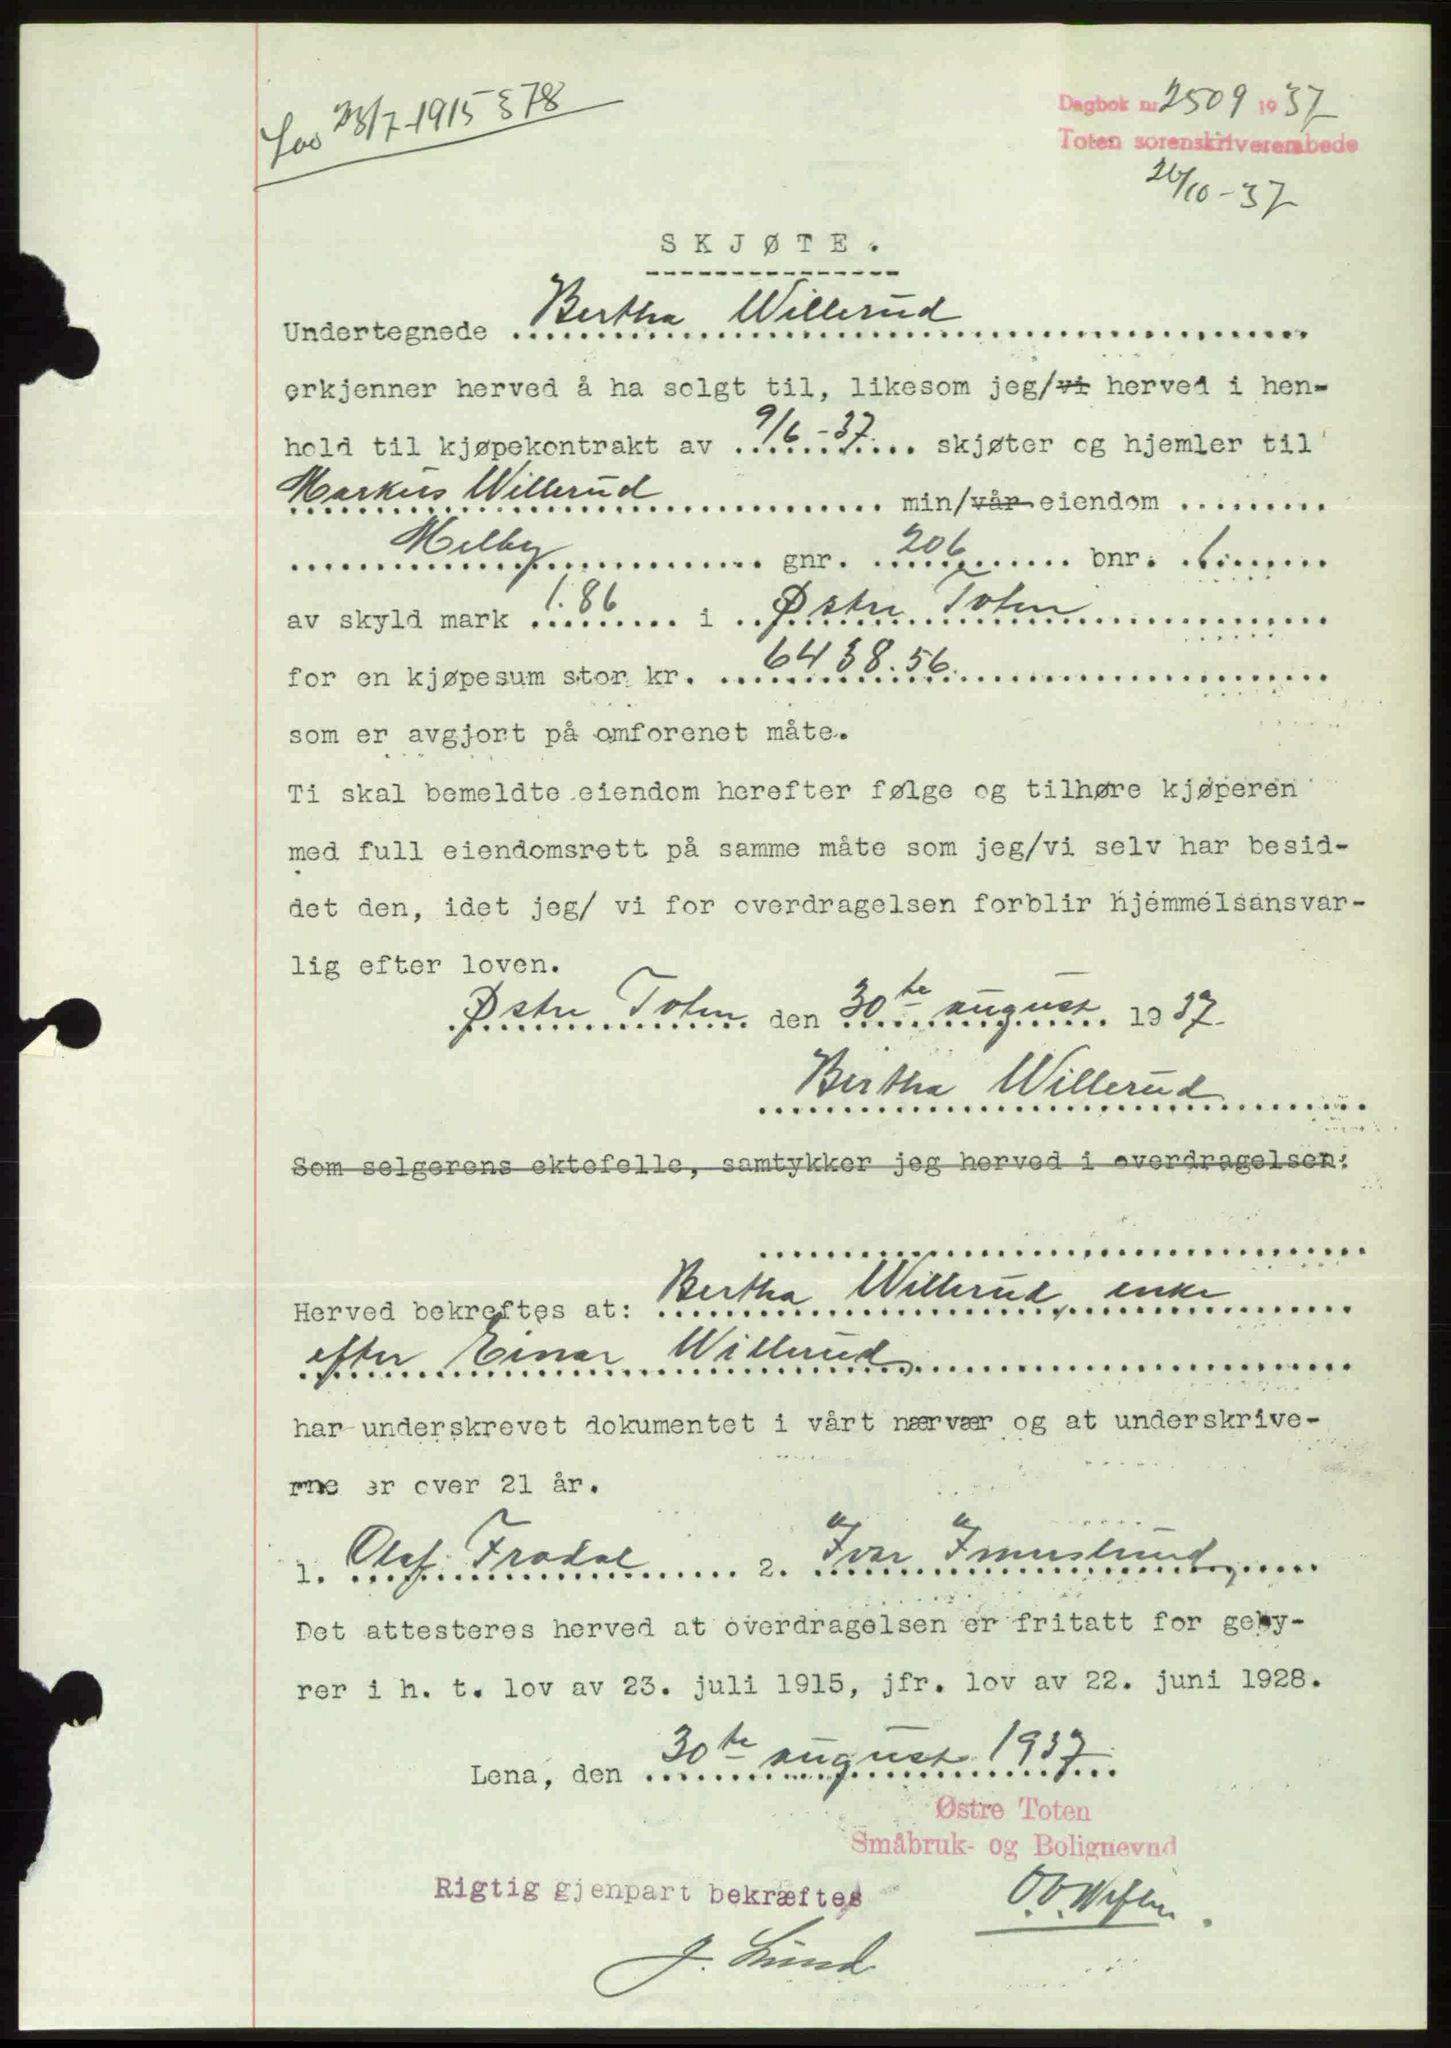 Lov 23/7-1915 § 78
Dagbok nr 2509 1937
Toten sorenskriverembede
26/10-37
SKJØTE.
Undertegnede Bertha Willerud
erkjenner herved å ha solgt til, likesom jeg/vi herved i hen-
hold til kjøpekontrakt av 9/6-37 skjøter og hjemler til
Markus Willerud min/vår eiendom
Melby gnr. 206 bnr.
av skyld mark 1.86 i Østre Toten
for en kjøpesum stor kr. 6438.56.
som er avgjort på omforenet måte.
Ti skal bemeldte eiendom herefter følge og tilhøre kjøperen
med full eiendomsrett på samme måte som jeg/vi selv har besid-
det den, idet jeg/ vi for overdragelsen forblir hjemmelsansvar-
lig efter loven.
Østre Toten den 30te august 1937.
Bertha Willerud
Som selgerens ektefelle, samtykker jeg herved i overdragelsen:
Herved bekreftes at: Bertha Willerud, enke
efter Einar Willerud,
har underskrevet dokumentet i vårt nærvær og at underskrive-
rne er over 21 år.
1. Olaf Frodal 2. Ivar
Det attesteres herved at overdragelsen er fritatt for geby-
rer i h. t. lov av 23. juli 1915, jfr. lov av 22. juni 1928.
Lena, den 30te august 1937.
Østre Toten
Småbruk- og Bolignevnd
Rigtig gjenpart bekræftes
J. Lund